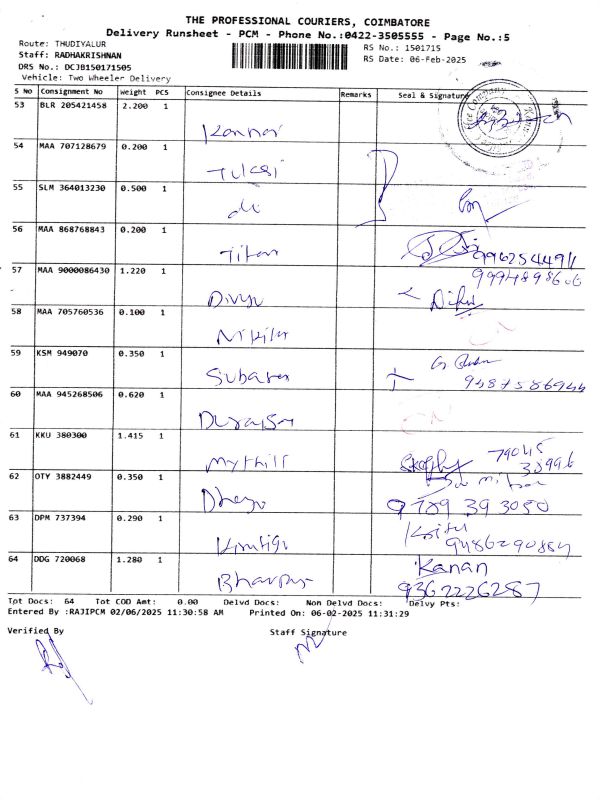 THE PROFESSIONAL COURIERS, COIMBATORE
Delivery Runsheet - PCM - Phone No.:0422-3505555 - Page No.:5
Route: THUDIYALUR
RS No.: 1501715
Staff: RADHAKRISHNAN
RS Date: 06-Feb-2025
DRS No.: DCJB150171505
Vehicle: Two Wheeler Delivery
S No Consignment No Weight PCS Consignee Details Remarks Seal & Signature
53 BLR 205421458 2.200 1
Kannan
54 MAA 707128679 0.200 1
Tulasi
55 SLM 364013230 0.500 1
do
56 MAA 868768843 0.200 1
Titan
9962544911
57 MAA 9000086430 1.220 1
9994898606
Divya
58 MAA 705760536 0.100 1
Nikila
59 KSM 949070 0.350 1
60 MAA 945268506 0.620 1
61 KKU 380300 1.415 1
Mythili
79045
38996
62 OTY 3882449 0.350 1
9789 393050
63 DPM 737394 0.290 1
64 DDG 720068 1.280 1
Kanan
9362226287
Tot Docs: 64 Tot COD Amt: 0.00 Delvd Docs: Non Delvd Docs: Delvy Pts:
Entered By :RAJIPCM 02/06/2025 11:30:58 AM Printed On: 06-02-2025 11:31:29
Verified By Staff Signature